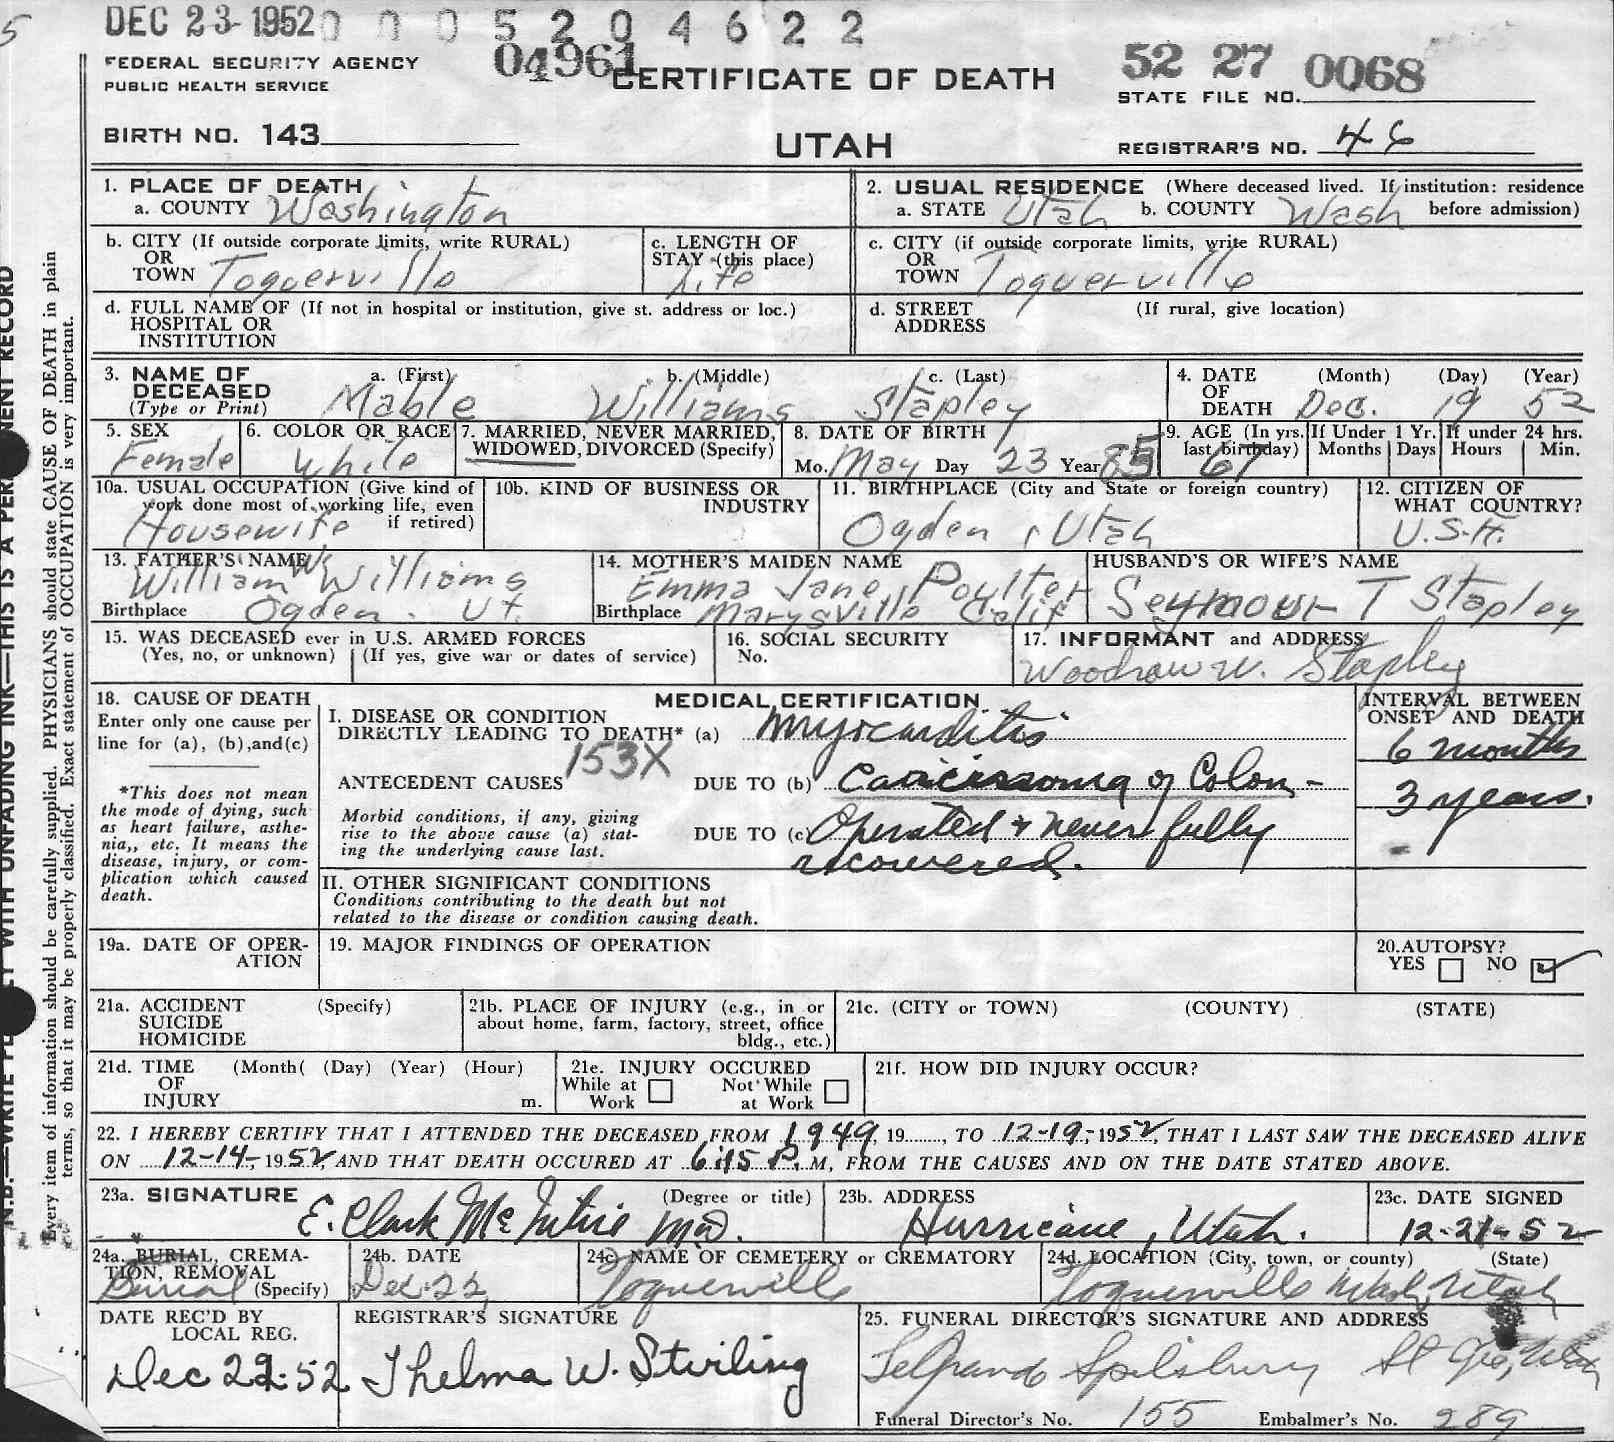 DEC 23 1952 0 0 0 5 2 0 4 6 2 2
FEDERAL SECURITY AGENCY
PUBLIC HEALTH SERVICE
04961
CERTIFICATE OF DEATH
52 27 0068
STATE FILE NO.
BIRTH NO. 143
UTAH
REGISTRAR'S NO. 46
1. PLACE OF DEATH
a. COUNTY Washington
2. USUAL RESIDENCE (Where deceased lived. If institution: residence
a. STATE Utah b. COUNTY Wash before admission)
b. CITY (If outside corporate limits, write RURAL)
OR
TOWN Toquerville
c. LENGTH OF
STAY (this place)
Life
c. CITY (if outside corporate limits, write RURAL)
OR
TOWN Toquerville
d. FULL NAME OF (If not in hospital or institution, give st. address or loc.)
HOSPITAL OR
INSTITUTION
d. STREET (If rural, give location)
ADDRESS
3. NAME OF DECEASED (Type or Print)
a. (First) b. (Middle) c. (Last)
Mable Williams Stapley
4. DATE OF DEATH (Month) (Day) (Year)
Dec. 19 52
5. SEX
Female
6. COLOR OR RACE
White
7. MARRIED, NEVER MARRIED,
WIDOWED, DIVORCED (Specify)
8. DATE OF BIRTH
Mo. May Day 23 Year 85
9. AGE (In yrs. last birthday)
67
If Under 1 Yr. Months Days
If under 24 hrs. Hours Min.
10a. USUAL OCCUPATION (Give kind of
work done most of working life, even
if retired)
Housewife
10b. KIND OF BUSINESS OR
INDUSTRY
11. BIRTHPLACE (City and State or foreign country)
Ogden, Utah
12. CITIZEN OF
WHAT COUNTRY?
U.S.A.
13. FATHER'S NAME
William W Williams
Birthplace Ogden. Ut.
14. MOTHER'S MAIDEN NAME
Emma Jane Poulter
Birthplace Marysville Calif
HUSBAND'S OR WIFE'S NAME
Seymour T Stapley
15. WAS DECEASED ever in U.S. ARMED FORCES
(Yes, no, or unknown) (If yes, give war or dates of service)
16. SOCIAL SECURITY
No.
17. INFORMANT and ADDRESS
Woodrow W. Stapley
18. CAUSE OF DEATH
Enter only one cause per
line for (a), (b),and(c)
*This does not mean
the mode of dying, such
as heart failure, asthe-
nia,, etc. It means the
disease, injury, or com-
plication which caused
death.
MEDICAL CERTIFICATION
I. DISEASE OR CONDITION
DIRECTLY LEADING TO DEATH* (a) Myocarditis
153X
ANTECEDENT CAUSES DUE TO (b) Carcinoma of Colon -
Morbid conditions, if any, giving
rise to the above cause (a) stat-
ing the underlying cause last.
DUE TO (c) Operated & never fully
recovered.
INTERVAL BETWEEN
ONSET AND DEATH
6 months
3 years.
II. OTHER SIGNIFICANT CONDITIONS
Conditions contributing to the death but not
related to the disease or condition causing death.
19a. DATE OF OPER-
ATION
19. MAJOR FINDINGS OF OPERATION
20. AUTOPSY?
YES NO
21a. ACCIDENT (Specify)
SUICIDE
HOMICIDE
21b. PLACE OF INJURY (e.g., in or
about home, farm, factory, street, office
bldg., etc.)
21c. (CITY or TOWN) (COUNTY) (STATE)
21d. TIME (Month( (Day) (Year) (Hour)
OF
INJURY m.
21e. INJURY OCCURED
While at Work Not While at Work
21f. HOW DID INJURY OCCUR?
22. I HEREBY CERTIFY THAT I ATTENDED THE DECEASED FROM 1949, 19......, TO 12-19-, 1952, THAT I LAST SAW THE DECEASED ALIVE
ON 12-14-, 1952, AND THAT DEATH OCCURED AT 6:15 P. M, FROM THE CAUSES AND ON THE DATE STATED ABOVE.
23a. SIGNATURE (Degree or title)
E. Clark McIntire MD.
23b. ADDRESS
Hurricane, Utah.
23c. DATE SIGNED
12-21-52
24a. BURIAL, CREMA-
TION, REMOVAL
Burial (Specify)
24b. DATE
Dec. 22,
24c. NAME OF CEMETERY or CREMATORY
Toquerville
24d. LOCATION (City, town, or county) (State)
Toquerville Wash, Utah
DATE REC'D BY
LOCAL REG.
Dec 22-52
REGISTRAR'S SIGNATURE
Thelma W. Stirling
25. FUNERAL DIRECTOR'S SIGNATURE AND ADDRESS
Spilsbury St Geo, Utah
Funeral Director's No. 155 Embalmer's No. 289
Every item of information should be carefully supplied. PHYSICIANS should state CAUSE OF DEATH in plain
terms, so that it may be properly classified. Exact statement of OCCUPATION is very important.